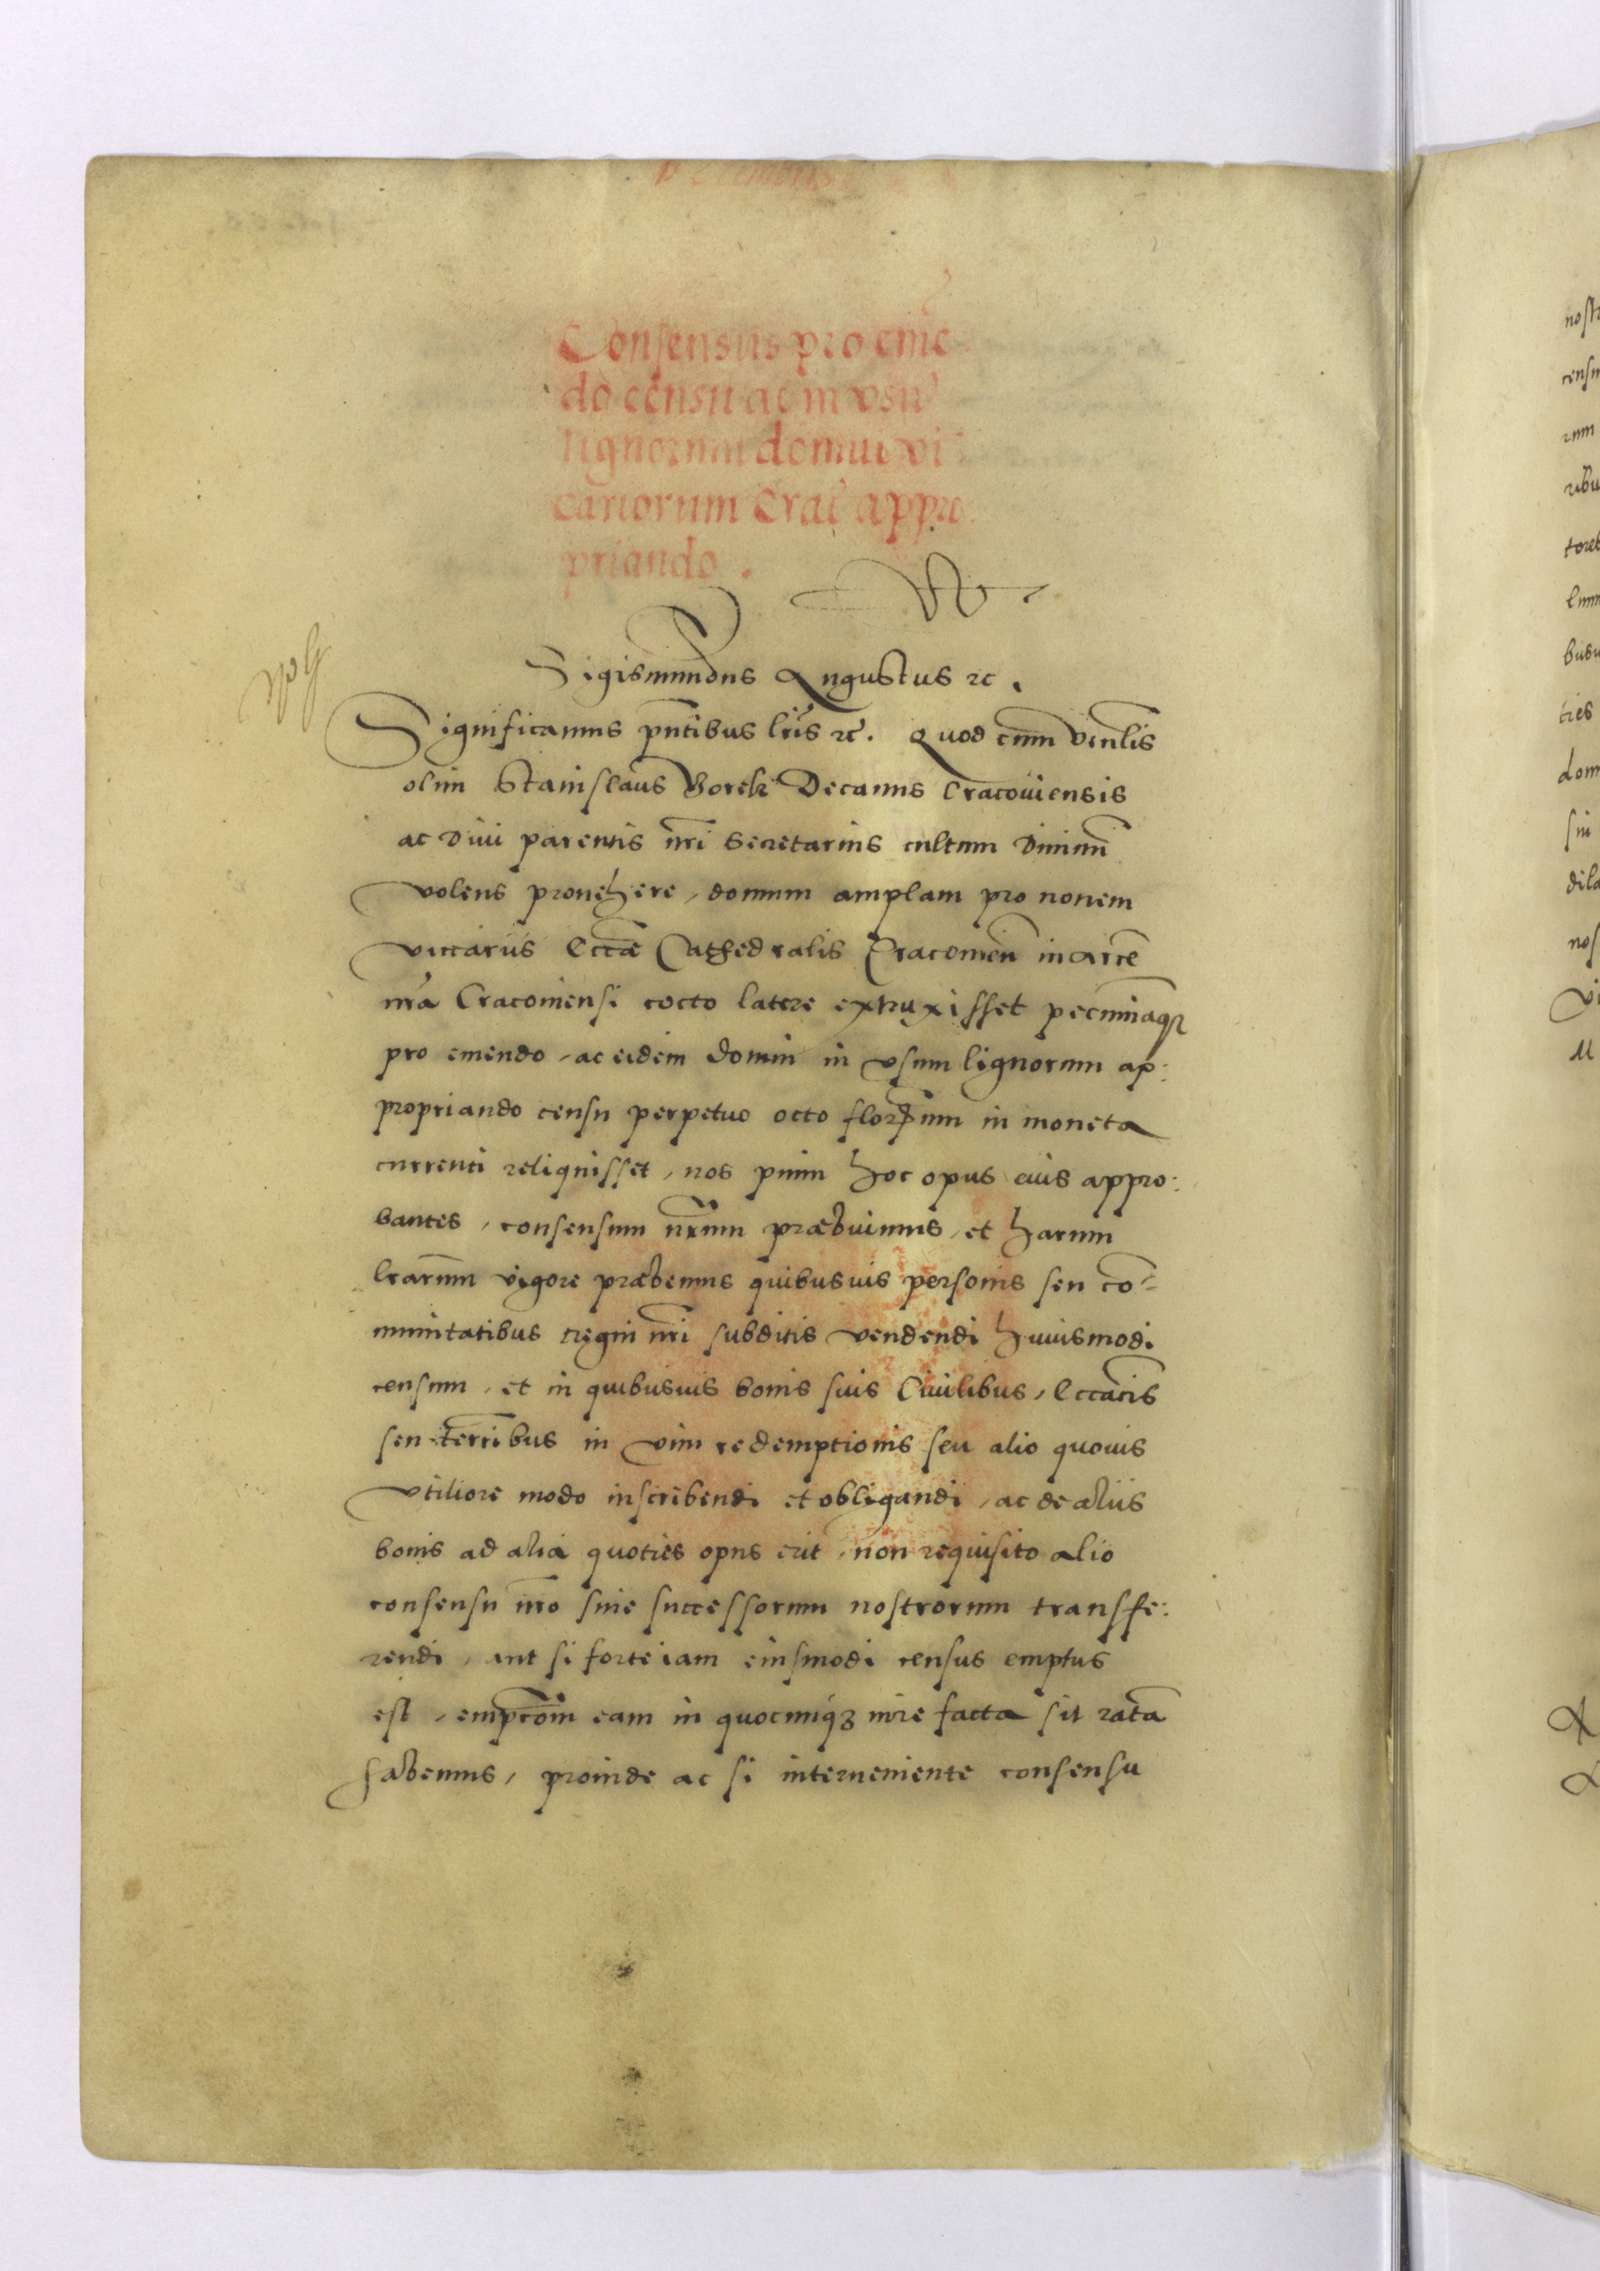 Consensus pro emē
do censu ac in vsū
lignorum domui vi
cariorum Craē appro
priando.
Sigismundus Augustus rc.
Significamus pñtibus lr̃is rc̃. Quod cum Venlis̃
olim Stanislaus Borek Decanus Cracoviensis
ac Divi parentis nr̃i Secretarius cultum Diuinū
volens prouehere, domum amplam pro nouem
viccariis Eccłæ Cathedralis Cracouieñ in arce
nr̃a Cracouiensi cocto latere extruxisset pecuniãq3
pro emendo, ac eidem domui in vsum lignorum ap:
propriando censu perpetuo octo florẽum in moneta
currenti reliquisset, nos pium hoc opus eius appro:
bantes, consensum nr̃um præbuimus, et harum
lrarum̃ vigore præbemus quibusuis personis seu co-
munitatibus regni nr̃i subditis vendendi huiusmodi
censum, et in quibusuis bonis suis Ciuilibus, Eccãcis
seu terrĩbus in vim redemptionis seu alio quouis
vtiliore modo inscribendi et obligandi, ac de aliis
bonis ad alia quoties opus erit, non requisito alio
consensu nr̃o siue successorum nostrorum transfe:
rendi, aut si forte iam eiusmodi census emptus
est, empcõm eam in quocunq3 iure facta sit ratã
habemus, proinde ac si interueniente consensu
nost
censu
rum
ribu
toreb
busu
ties
dom
siu
dila
nos